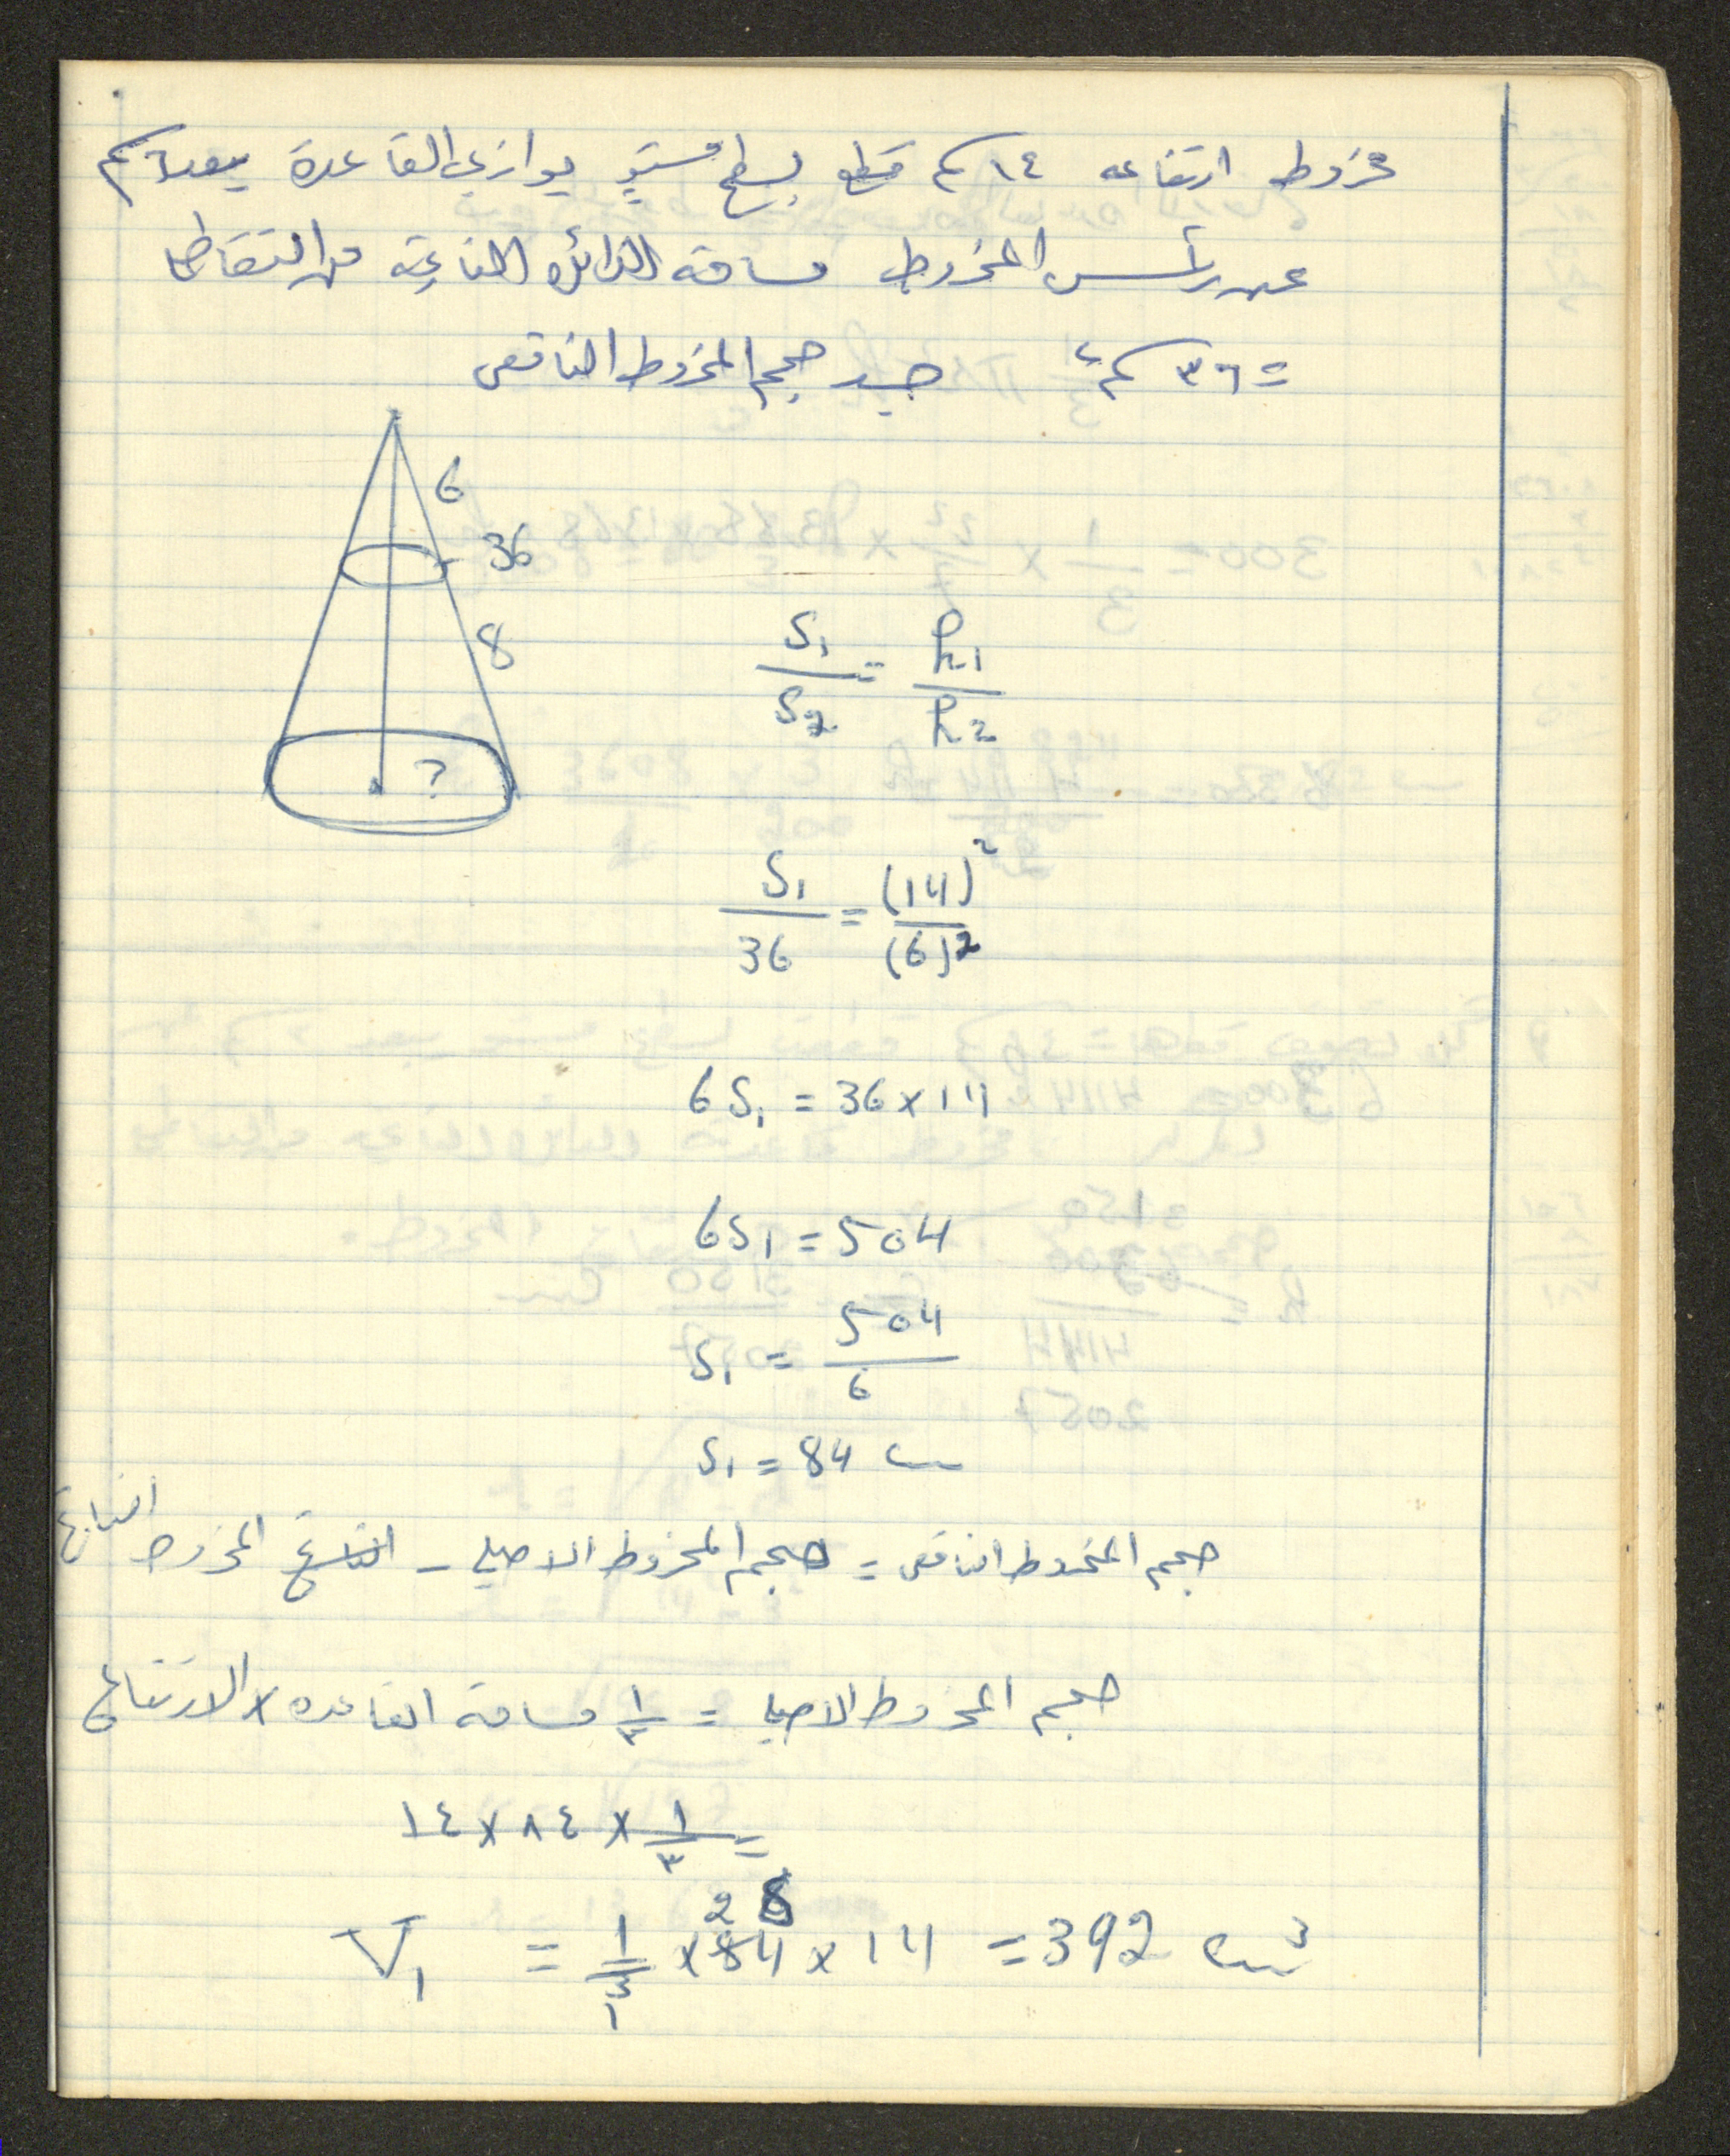 مخروط ارتفاعه ١٤ كم قطع بسطح مستوٍ يوازي القاعدة يبعد ٦ كم
عن رأس المخروط مساحة الدائرة الناتجة من التقاطع
= ٣٦ كم٢ جد حجم المخروط الناقص
6
36
8
?
S₁/S₂ = h₁/h₂
S₁/36 = (14)²/(6)²
6S₁ = 36 × 14
6S₁ = 504
S₁ = 504/6
S₁ = 84 cm
حجم المخروط الناقص = حجم المخروط الاصلي - المخروط الناتج
حجم المخروط الاصلي = ١/٣ مساحة القاعده × الارتفاع
= ١/٣ × ٨٤ × ١٤
28
V₁ = 1/3 × 84 × 14 = 392 cm³
1